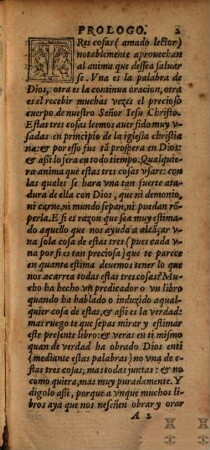 PROLOGO. 2
TRes cosas (amado lector)
notablemente aprouechan
al anima que dessea saluar
se. Vna es la palabra de
Dios, otra es la continua oracion, otra
es el recebir muchas vezes el precioso
cuerpo de nuestro Señor Iesu Christo.
Estas tres cosas leemos auer sido muy v-
sadas en principio de la iglesia christia
na: & por esso fue tã prospera en Dios:
& assi lo sera en todo tiempo. Qualquie-
ra anima que estas tres cosas vsare: con
las quales se hara vna tan fuerte atadu-
dura de ella con Dios, que ni demonio,
ni carne, ni mundo sepan, ni puedan rõ
perla. E si es razon que sea muy estima-
do aquello que nos ayuda a alcãçar v-
na sola cosa de estas tres (pues cada v-
na por si es tan preciosa) que te pare-
ce en quanta estima deuemos tener lo que
nos acarrea todas estas tres cosas? Mu-
cho ha hecho vn predicador o vn libro
quando ha hablado o induzido aqual-
quier cosa de estas, & assi es la verdad:
mas ruego te que sepas mirar y estimar
este presente libro: & veras en ti mismo
quan de verdad ha obrado Dios enti
(mediante estas palabras) no vna de e-
stas tres cosas, mas todas juntas: & no
como quiera, mas muy puramente. Y
digolo assi, porque a vnque muchos li-
bros aya que nos enseñen obrar y orar
A 2